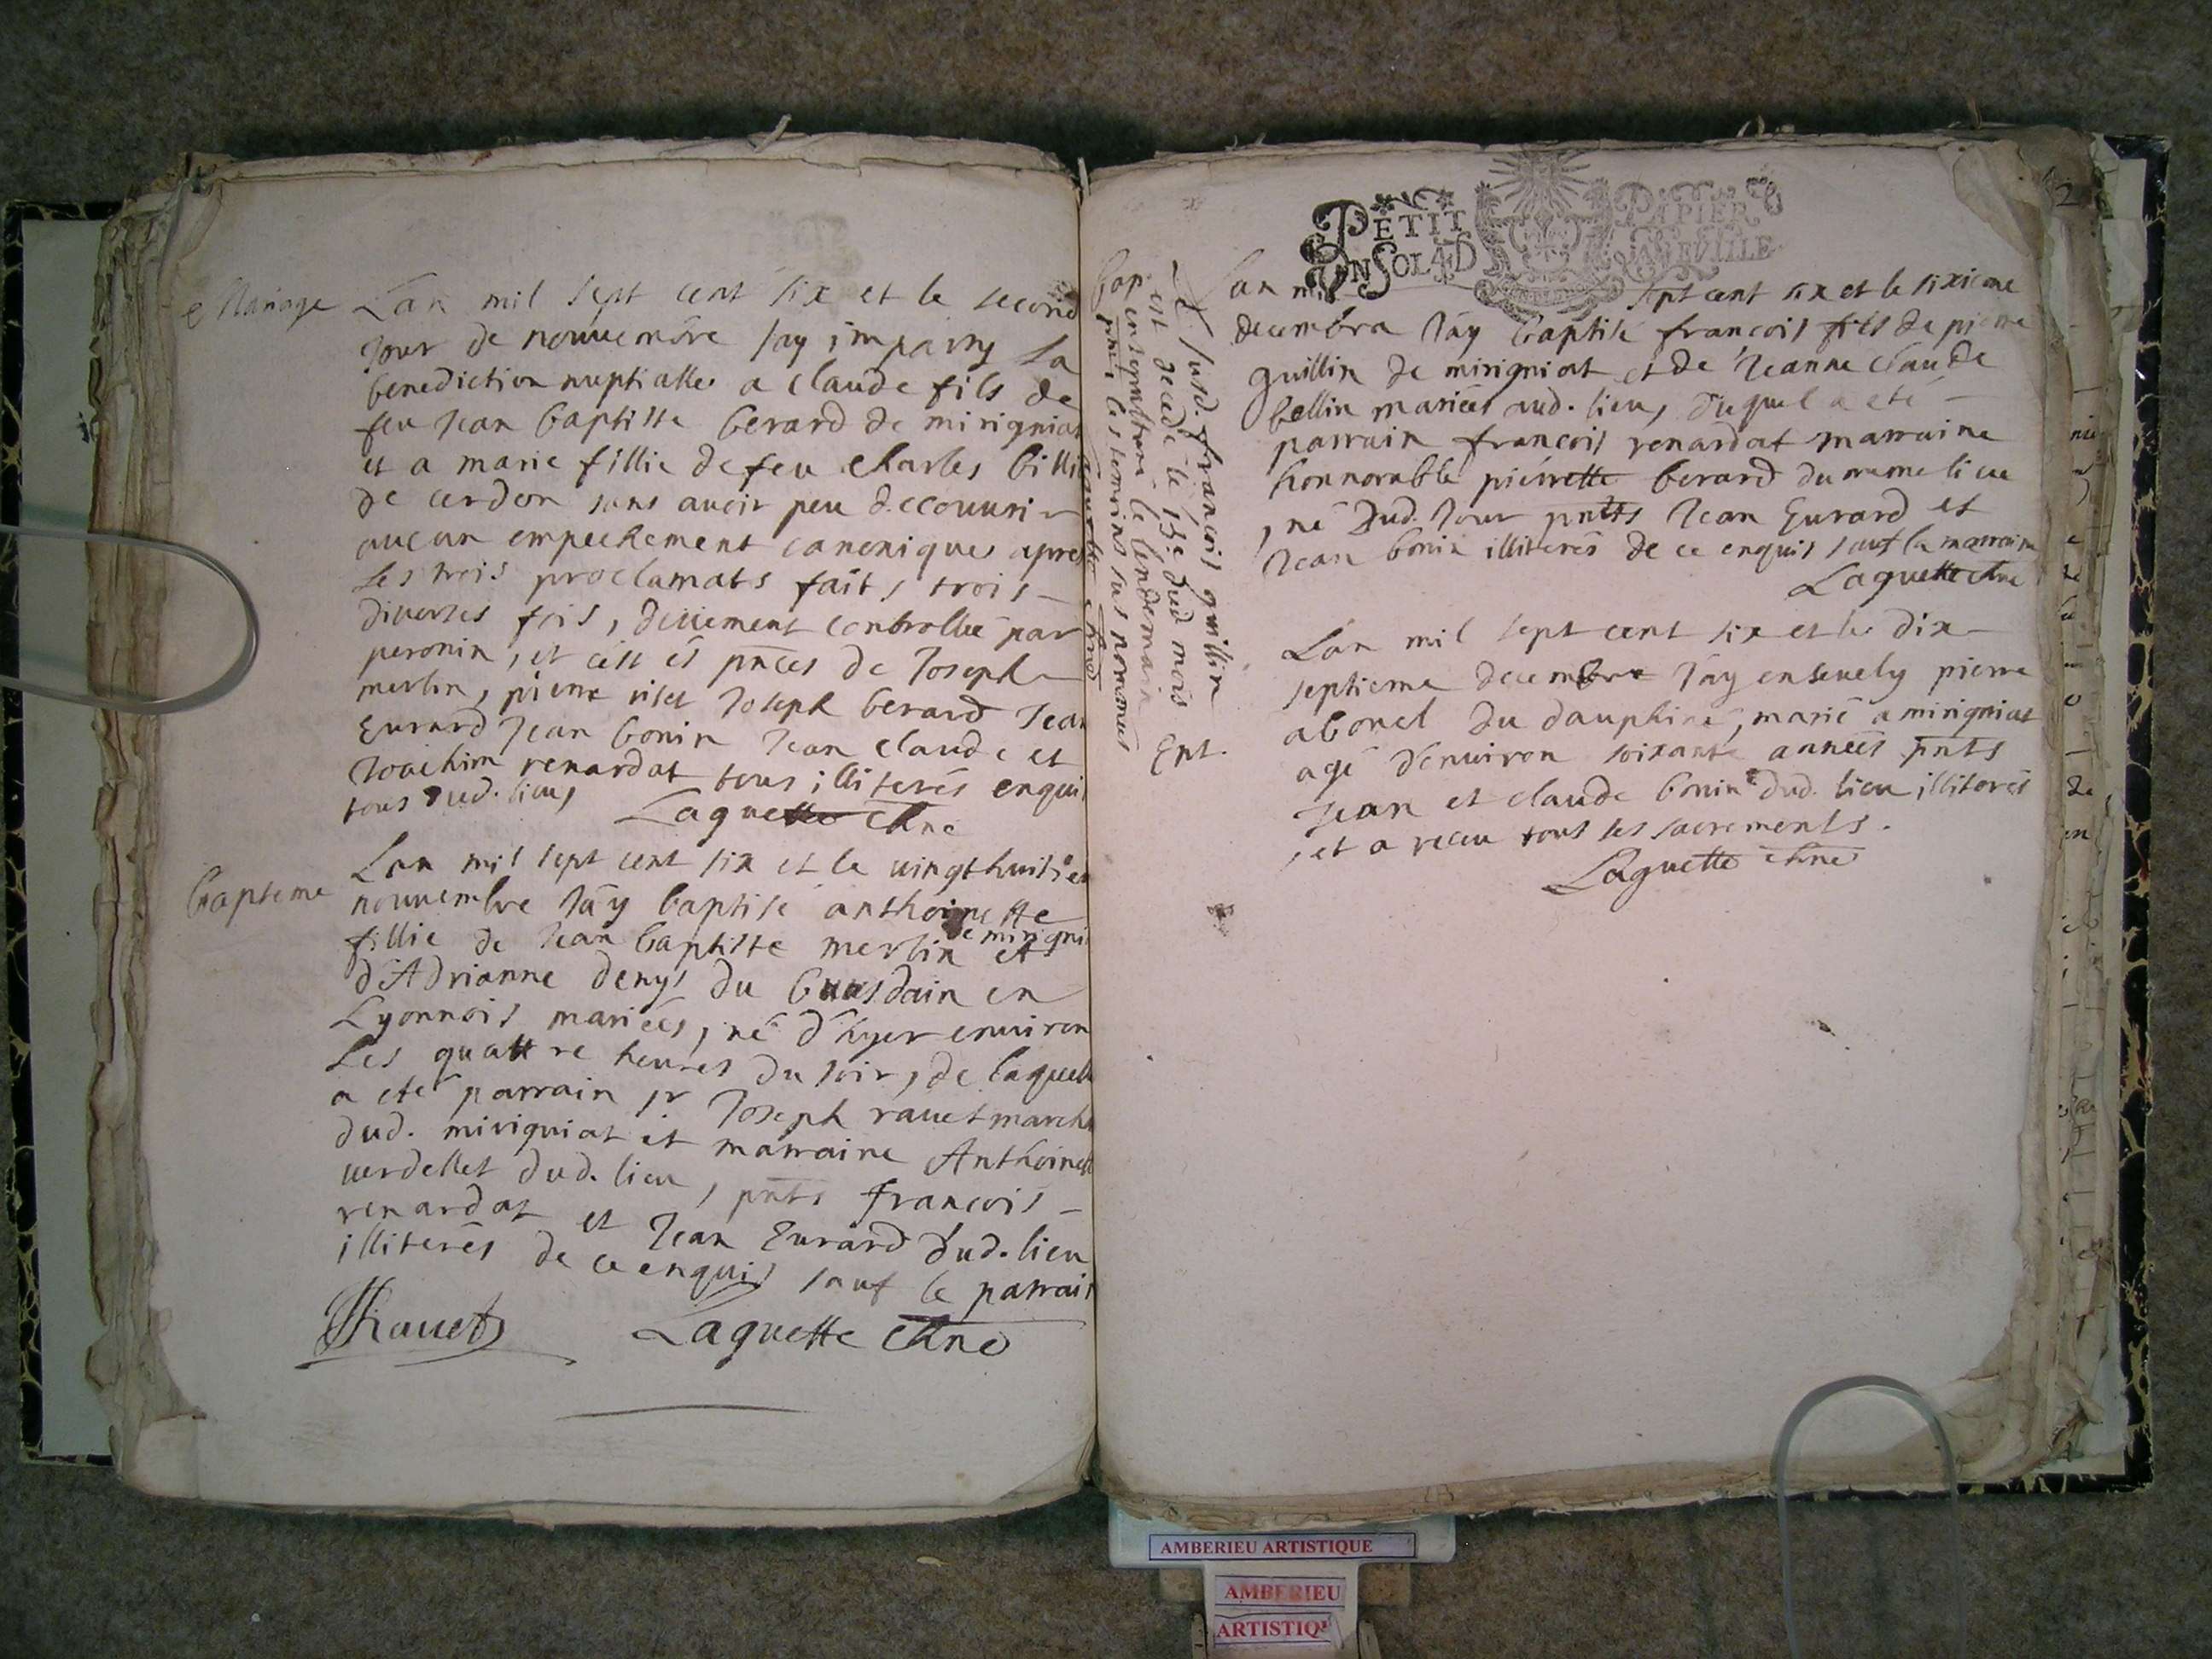 Mariage
Lan mil sept cent six et le second
Jour de nouuembre Jay imparty La
benediction nuptialle a claude fils de
feu Jean baptiste berard de mirigniat
et a marie fillie de feu Charles billi
de cerdon sans auoir peu decouurir
aucun empechement canoniques apres
Les trois proclamats faits trois
diverses fois, deüement controllée par
peronin, et c'est és pnces de Joseph
merlin, pierre Joseph berard Jean
Eurard Jean bonin Jean claude et
Joachim renardat tous illiterés enquis
tous dud. lieu, Laguette
Bapteme
Lan mil sept cent six et le uingt huitie
nouuembre Jäy baptisé anthoinette
fillie de Jean baptiste merlin et
de mirigni
d'Adrianne denys du en
Lyonnois mariées, né d'hyer enuiron
Les quattre heures du soir, de laquelle
a eté parrain sr Joseph rauet march
dud. mirigniat et marraine Anthoinett
uerdellet dud. lieu, pnts francois
renardat et Jean Eurard dud. lieu
illiterés de ce enquis sauf le parrain
Rauet Laguette
Bap
Le susd. francois guillin
est decedé le 13e dud mois
enseputturé le lendemain
pnts les temoins sus nommés
Laguette
PETIT PAPIER
UN SOL 4D LA FEUILLE
2
Lan mil sept cent six et le sixieme
decembre Jäy baptisé francois fils de pierre
guillin de mirigniat et de Jeanne claude
bellin mariées aud. lieu, duquel a eté
parrain francois renardat marraine
honnorable pierrette berard du meme lieu
, né dud. Jour pnts Jean Eurard et
Jean bonin illiterés de ce enquis sauf la marraine
Laguette
Ent.
Lan mil sept cent six et le dix
septieme decembre Jäy enseuely pierre
abonel du dauphiné, marié a mirigniat
agé d'enuiron soixante années pnts
Jean et claude bonin dud. lieu illiterés
, et a receu tous les sacrements.
Laguette
AMBERIEU ARTISTIQUE
AMBERIEU
ARTISTIQU